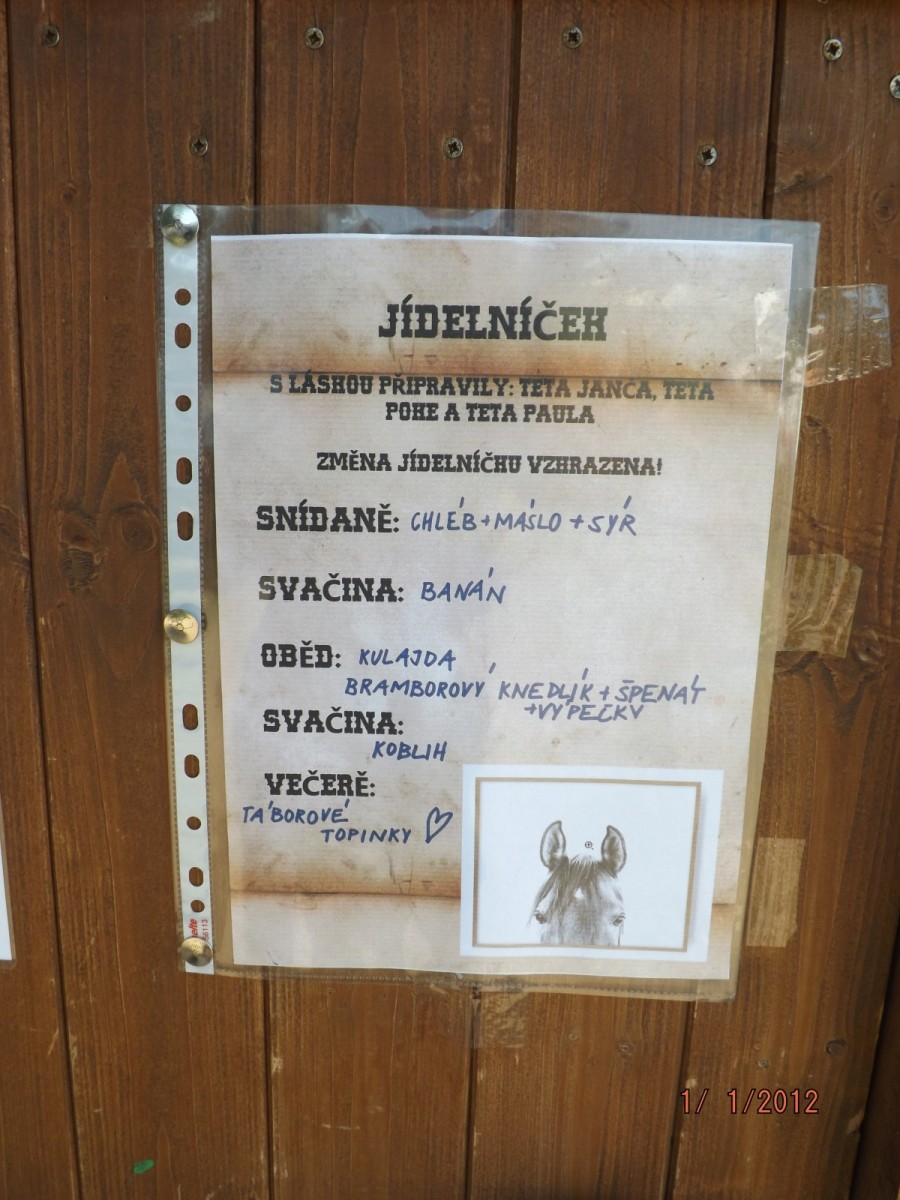 JÍDELNÍČEK
S LÁSKOU PŘIPRAVILY: TETA JANČA, TETA
POKE A TETA PAULA
ZMĚNA JÍDELNÍČKU VZHRAZENA!
SNÍDANĚ: CHLÉB + MÁSLO + SÝR
SVAČINA: BANÁN
OBĚD: KULAJDA
BRAMBOROVÝ KNEDLÍK + ŠPENÁT
+ VÝPEČKY
SVAČINA:
KOBLIH
VEČEŘĚ:
TÁBOROVÉ
TOPINKY
1/ 1/2012